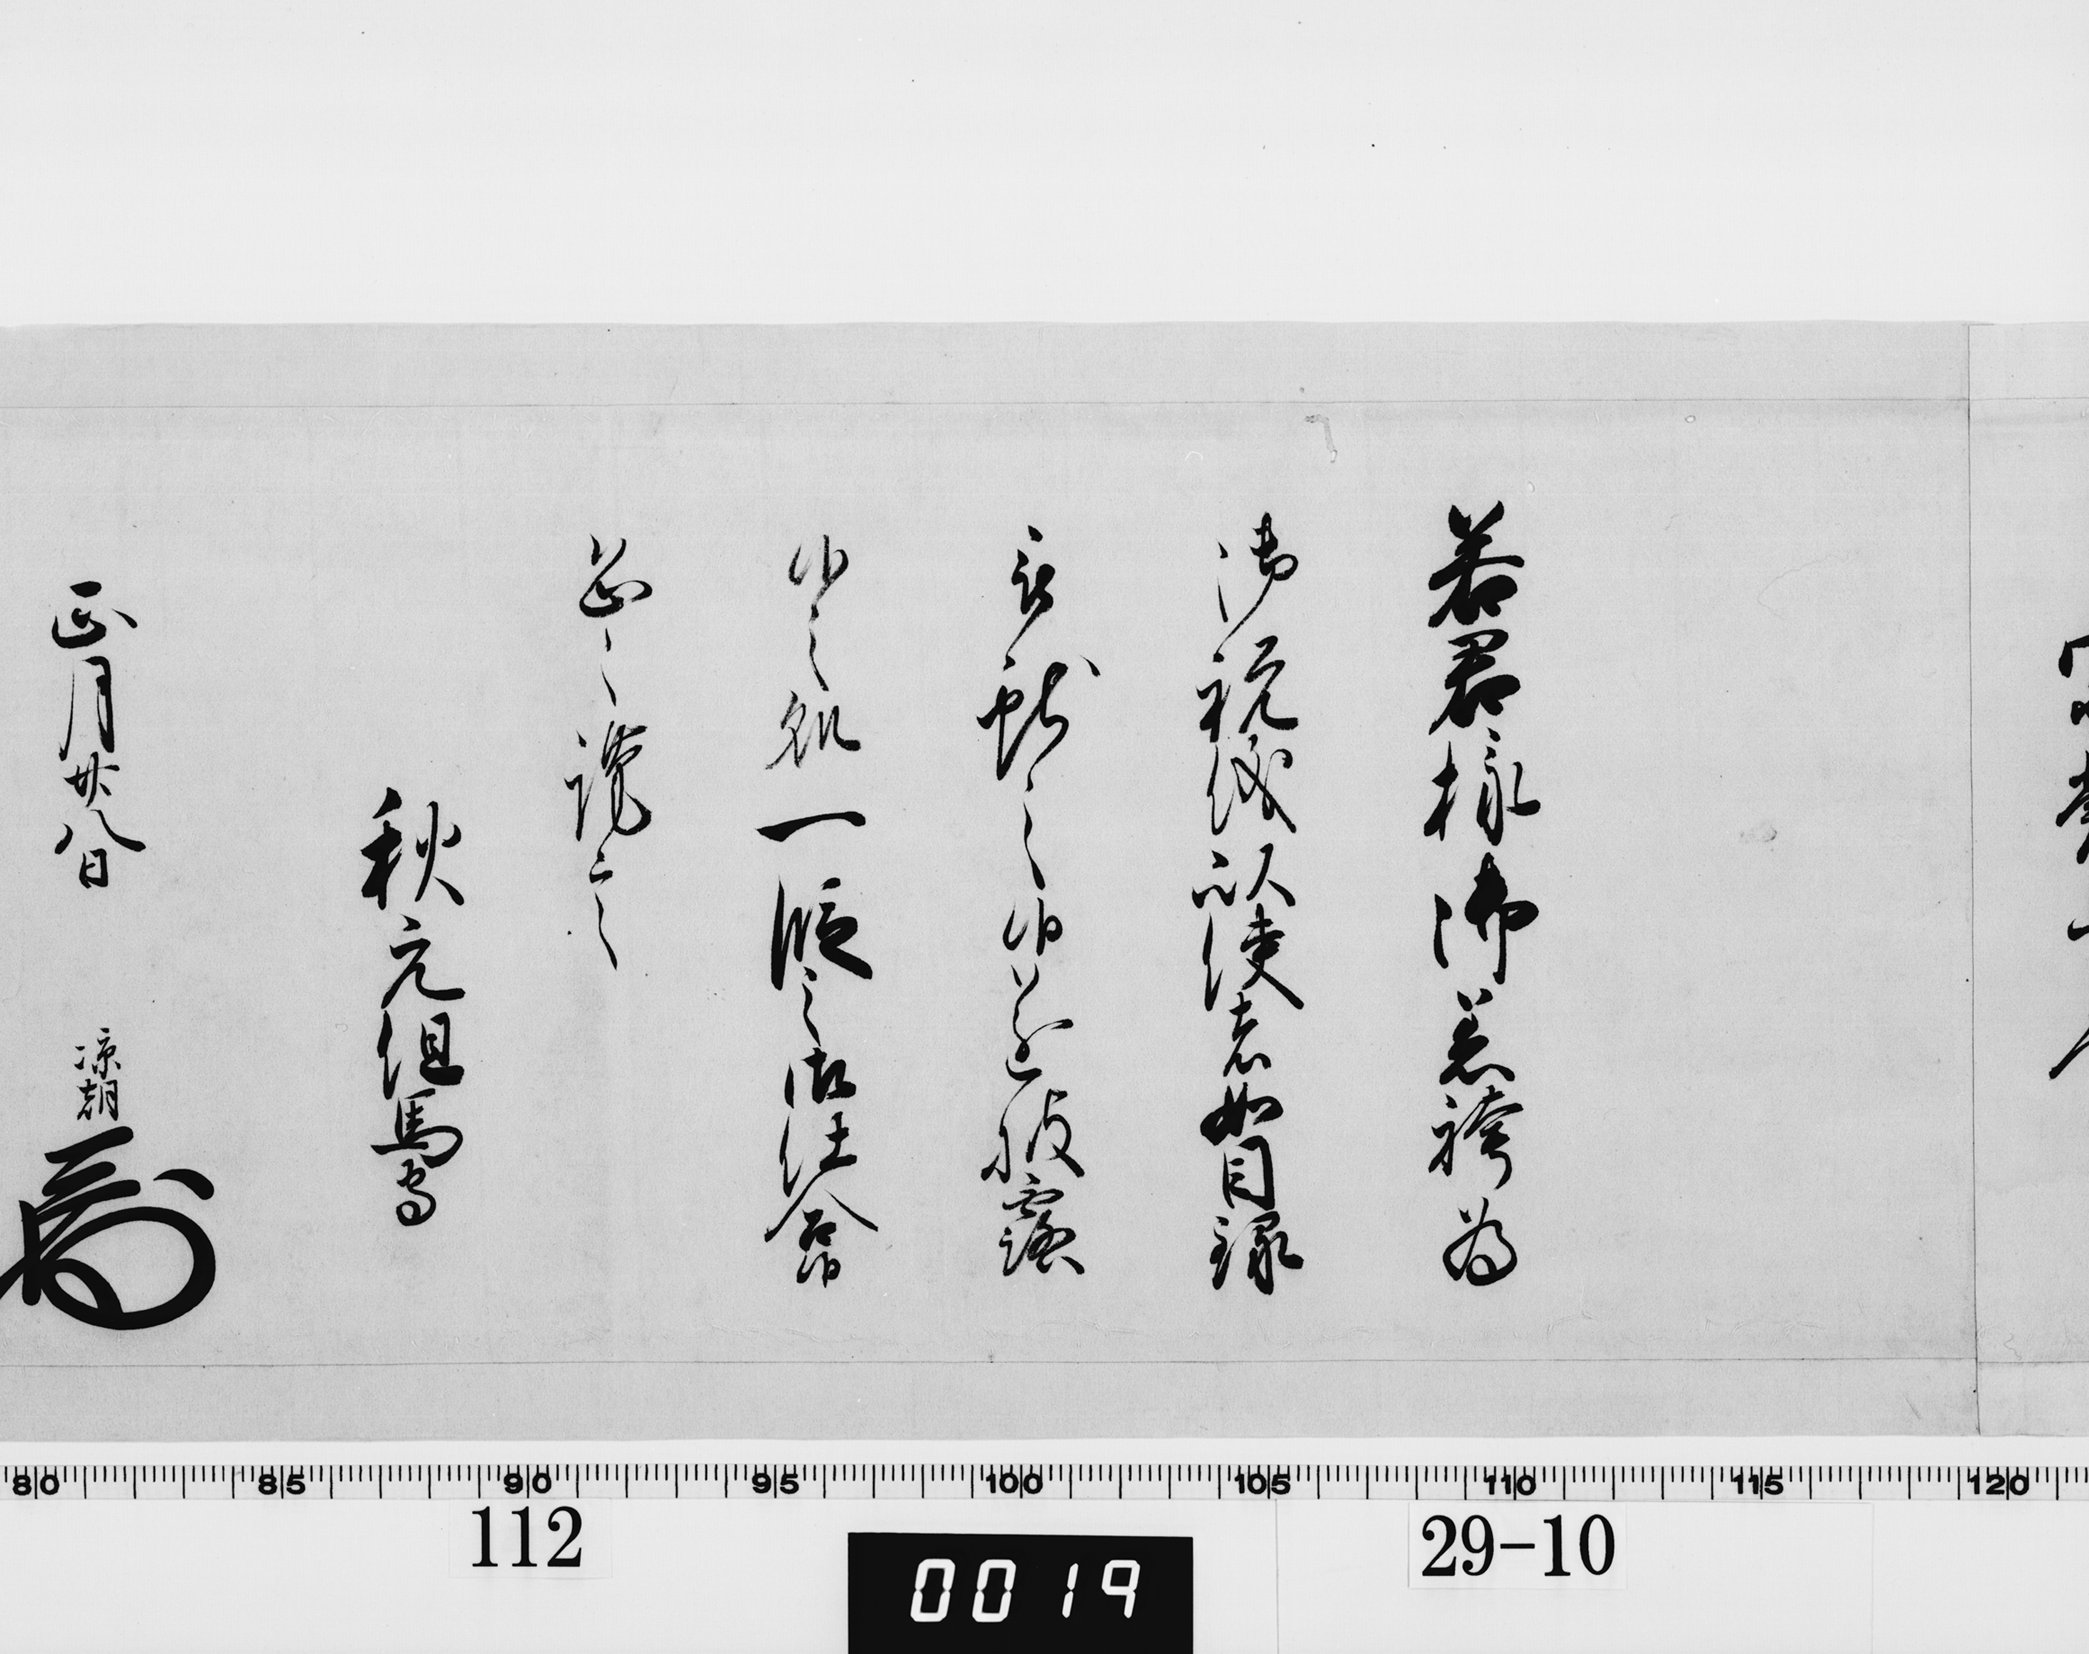 若君様御着袴為
御祝儀以使者如目録
被献之候遂披露
候之処一段之御仕合候
恐々謹言
秋元但馬守
正月廿八日
凉朝
80 85 90 95 100 105 110 115 120
112
0019
29-10